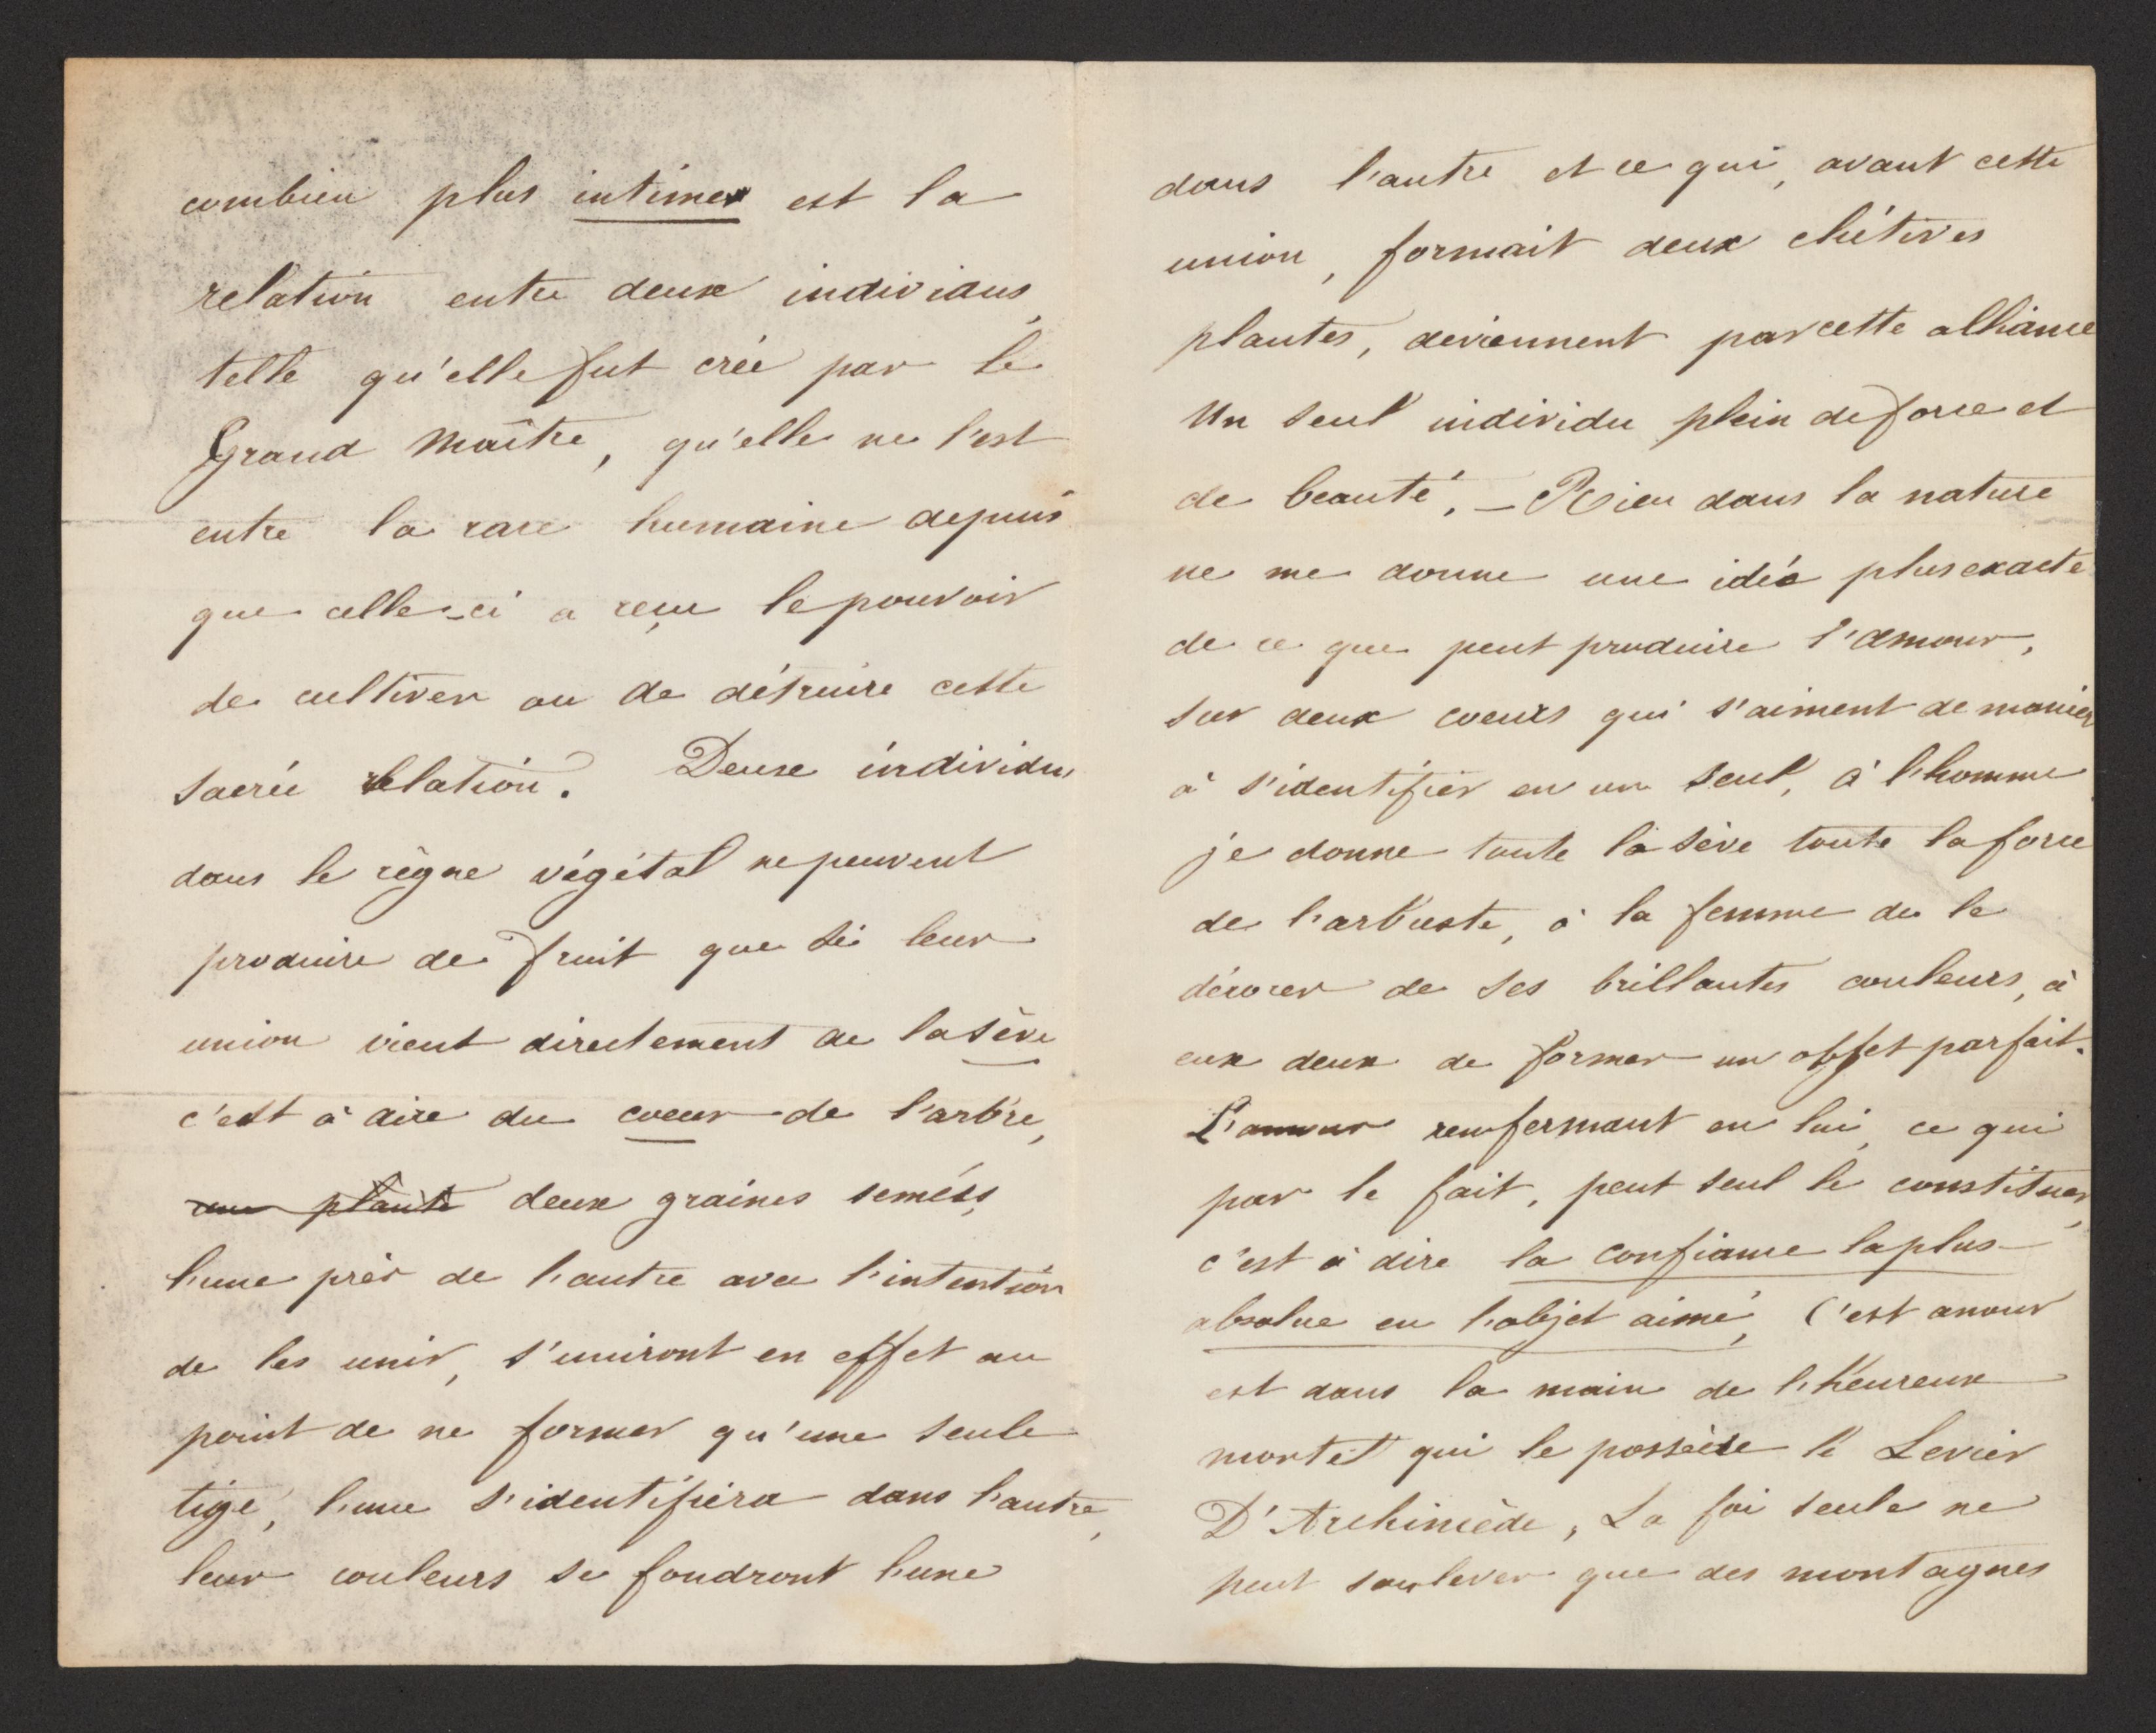 combien plus intime est la
relation entre deux individus,
telle qu'elle fut crée par le
Grand Maître, qu'elle ne l'est
entre la race humaine depuis
que celle-ci a reçu le pouvoir
de cultiver ou de détruire cette
sacrée relation. Deux individus
dans le règne végétal ne peuvent
produire de fruit que si leur
union vient directement de la sève
c'est à dire du coeur de l'arbre,
une plante deux graines semées,
l'une près de l'autre avec l'intention
de les unir, s'uniront en effet au
point de ne former qu'une seule
tige, l'une s'identifiera dans l'autre,
leur couleurs se fondront l'une
dans l'autre et ce qui, avant cette
union, formait deux chétives
plantes, deviennent par cette alliance
Un seul individu plein de force et
de beauté. — Rien dans la nature
ne me donne une idée plus exacte
de ce que peut produire l'amour,
sur deux coeurs qui s'aiment de manièr
à s'identifier en un seul, à l'homme
je donne toute la sève toute la force
de l'arbuste, à la femme de le
décorer de ses brillantes couleurs, à
eux deux de former un objet parfait.
L'amour renfermant en lui, ce qui
par le fait, peut seul le constituer,
c'est à dire la confiance la plus
absolue en l'objet aimé, C'est amour
est dans la main de l'heureux
mortel qui le possède le Levier
D'Archimède, La foi seule ne
peut soulever que des montagnes